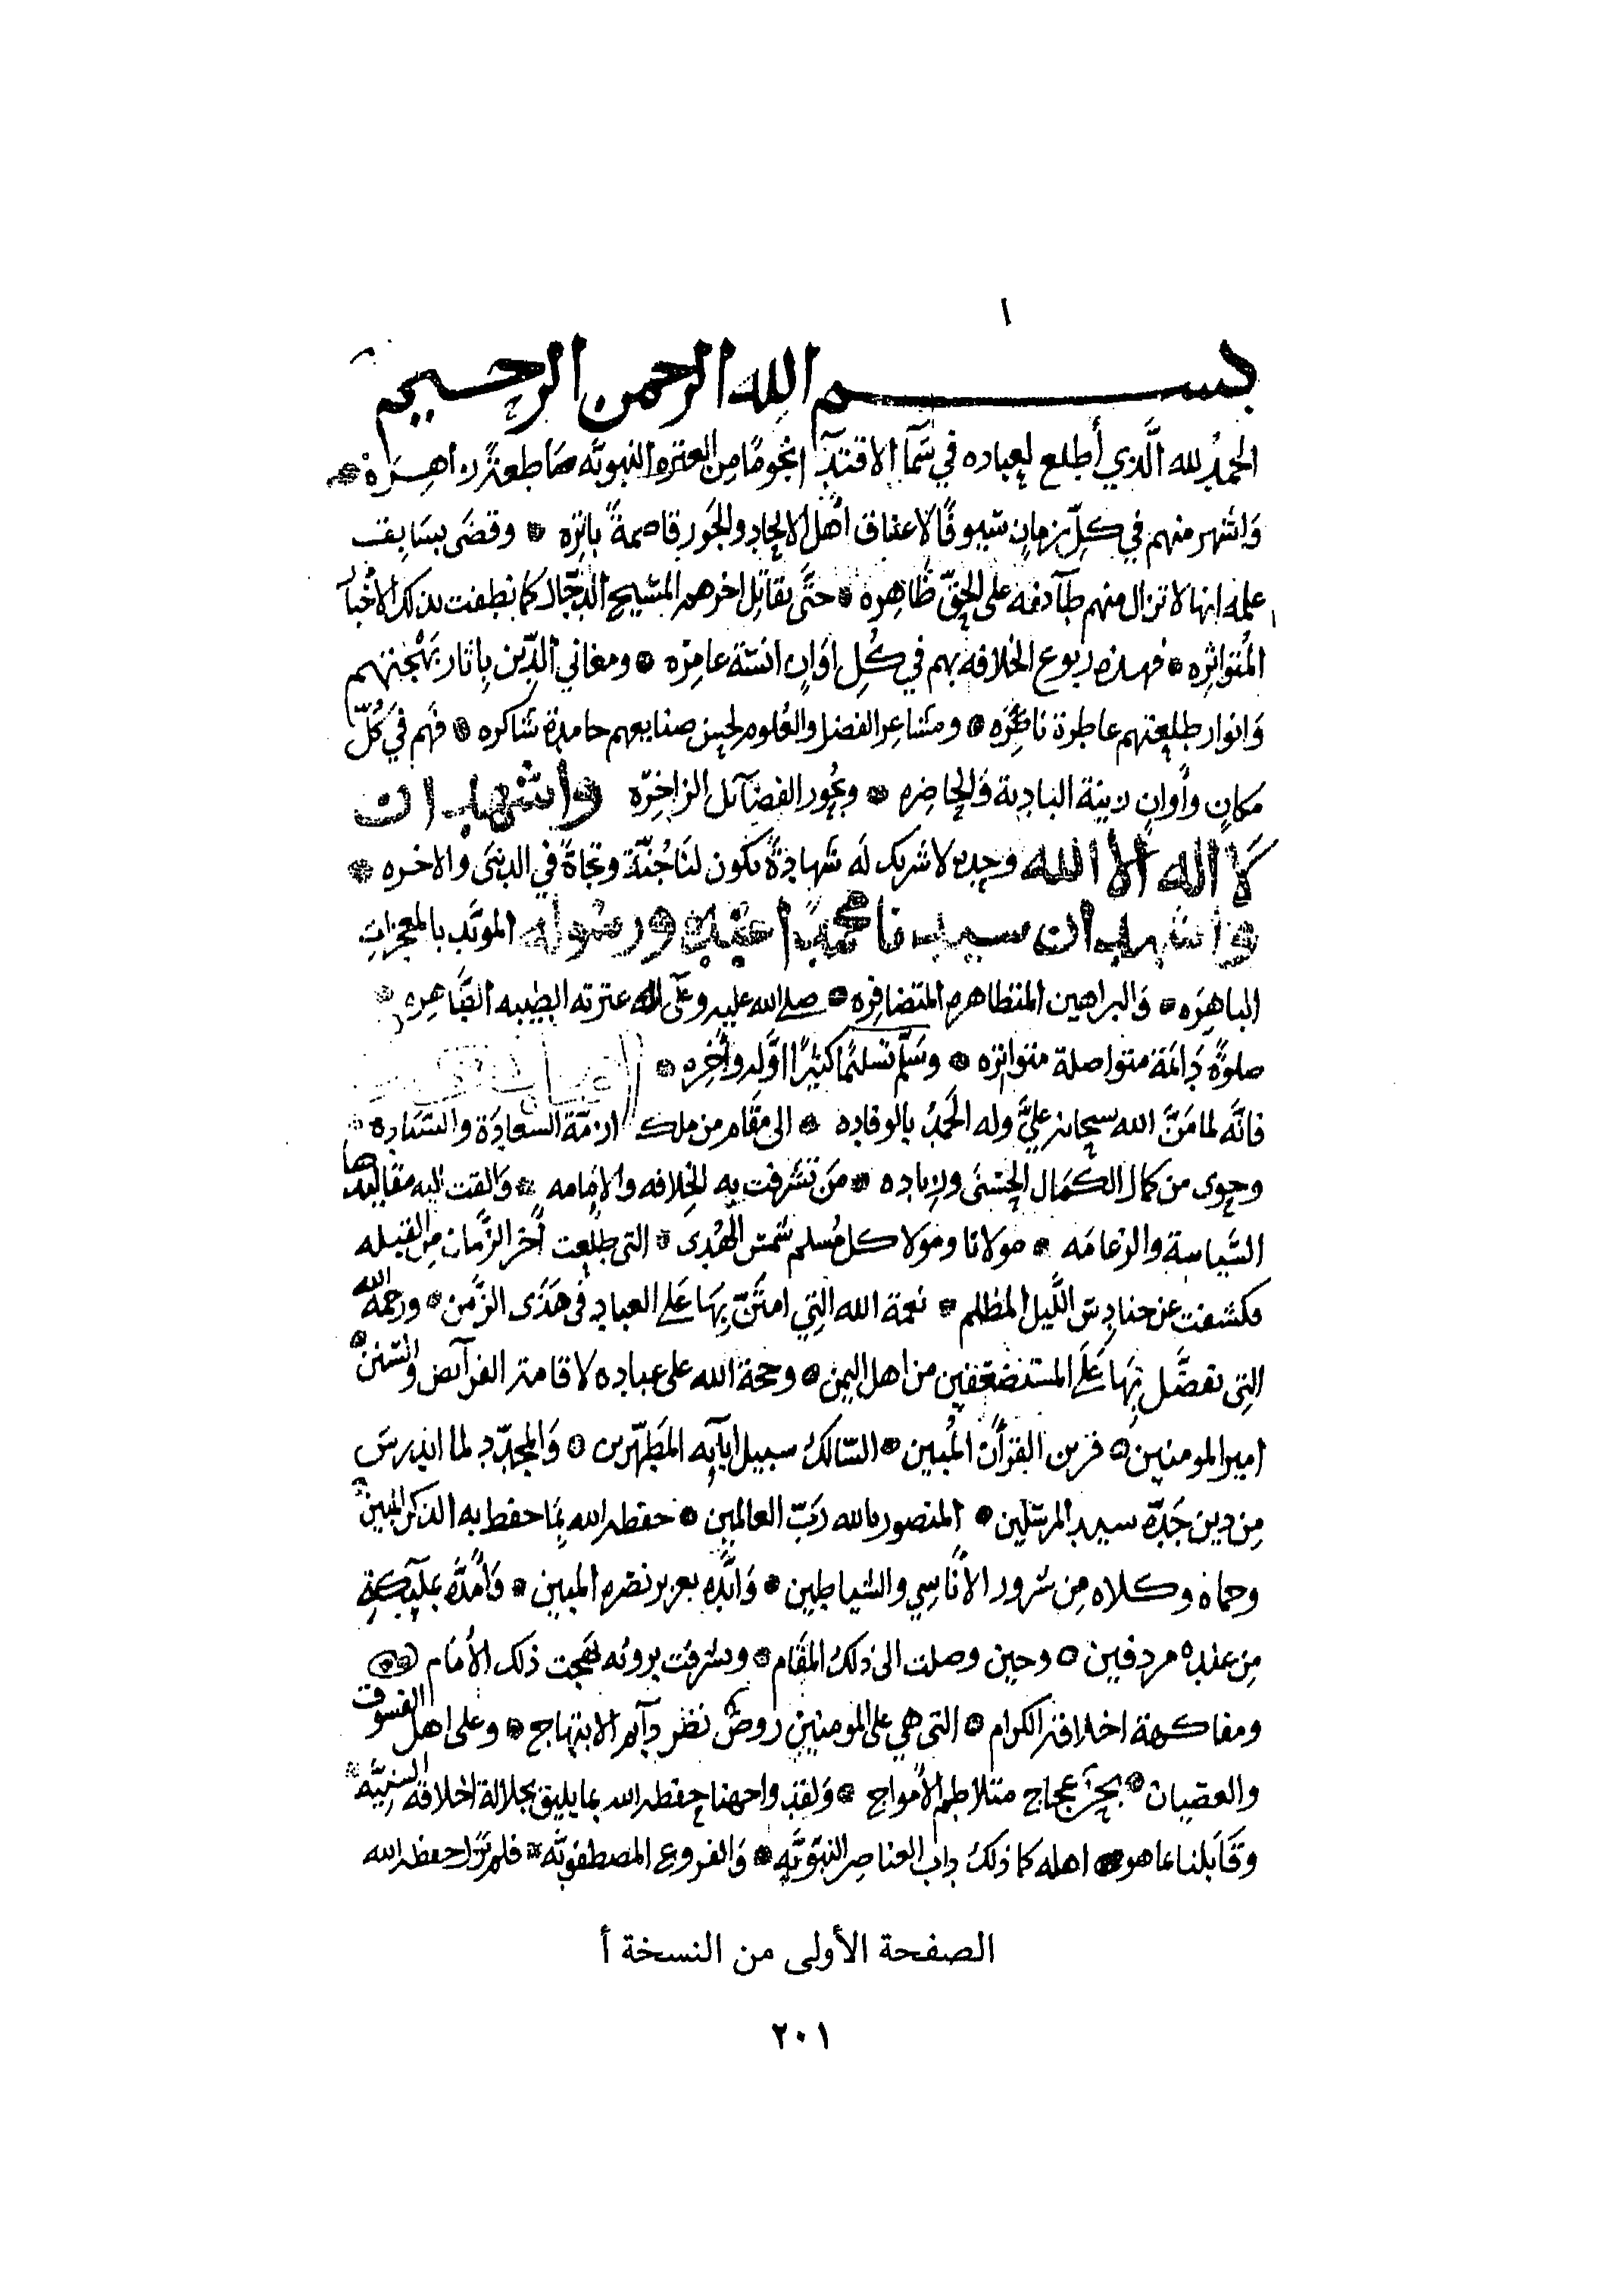 ١
بسم الله الرحمن الرحيم
الحمد لله الَّذي أطلع لعباده في سَمآ الاقتدآ انجومًا مِن العتره النبويَّه ساطعةً زاهِرَهْ ۞
وَاشهر منهم في كلِّ زمانٍ سُيوفًا لاعناق أهل الالحاد والجَور قاصمةً باتِرَه ۞ وقضَى بسَابِق
علمه انها لا تزال منهم طآئفه على الحقّ ظَاهِره ۞ حتَّى يقاتِل اخرهم المسَيح الدجّال كمَا نطقت بذلك الأخْبار
المُتَواتِره ۞ فهذه ربوع الخلافه بهم في كُلِ اوَانٍ انسَة عامِرَه ۞ ومغاني الدِّين بِاثار بَهْجتهم
وَانوار طلعتهم عاطرة ناظِرَه ۞ ومشاعِر الفضل والعُلوم لحسن صنايعهم حامدة شاكره ۞ فهم في كُلّ
مَكانٍ وأوانٍ زينة البادية وَالحاضِره ۞ وبُحور الفضآئل الزاخِرَه واشهد ان
لا اله الا الله وحده لا شريك له شهادةً تكون لنا جُنّة ونجاةً في الدنيَى والاخره ۞
واشهد ان سيدنا محمدًا عبده ورسوله الموَيَّد بالمعجزاتِ
الباهِرَه ۞ وَالبراهين المتظاهره المتضافِره ۞ صلى الله عليه وعَلَى اله عترته الطيبه الطَّاهِره ۞
صلوةً دَائمَة متواصلة متواتِره ۞ وسَلَّم تسْليمًا كثيرًا اوَّله وآخِره ۞ اما بعد
فانَّه لما مَنَّ الله سبحانه عليَّ وله الحَمدُ بالوفاده ۞ الى مقَام من ملك ازمّة السعادَة والسّيَاده ۞
وحوى من كمال الكمَال الحُسْنَى وزياده ۞ مَن تشرفت به الخِلافه والإمَامه ۞ وَالقت اليه مقاليدها
السّياسة والزعامَه ۞ مولانا ومَولا كل مُسلم شمس الهُدَى ۞ التي طلَعت آخر الزَّمان من القبله
فكشفت عن حنادِس اللَّيل المظلم ۞ نعمة الله التِي امتَنّ بِهَا عَلى العباد في هَذَى الزَّمن ۞ ورحمة الله
التِي تفضَّل بِهَا عَلَى المستضعَفين من اهل اليمن ۞ وحجة الله على عباده لاقامة الفرآئض والسّنن ۞
امير المومنين ۞ قرين القرأن المُبين ۞ السّالك سبيل ابآيِه المَطهّرين ۞ وَالمجدّد لما اندرسَ
مِن دين جَدّه سيد المرسَلين ۞ المنصور بالله رَبّ العالمين ۞ حفظه الله بِمَا حفظ به الذكر المبين ۞
وحماه وكلاه مِن شرور الأناسِي والشياطين ۞ وَايَّده بعزيز نصْره المبين ۞ وَأَمدَّه بملآيكةٍ
مِن عنده مردفين ۞ وحين وصلت الى ذلك المقَام ۞ وشرفت برويَه بهجت ذلك الأمَام ۞
ومفاكهة اخلاقه الكرام ۞ التي هي على المومنين روضٌ نظر دآيم الابتهاج ۞ وعلى اهل الفسوق
والعصيان ۞ بحرٌ عجاج متلاطم الأمواج ۞ وَلقد واجهنا حفظه الله بما يليق بجلالة اخلاقه السَنِيَّه ۞
وقَابلنا بما هو ۞ اهله كما ذلك داب العناصر النبَويَّه ۞ وَالفروع المصطفويَّه ۞ فلم يَزل حفظه الله
الصفحة الأولى من النسخة أ
٢٠١